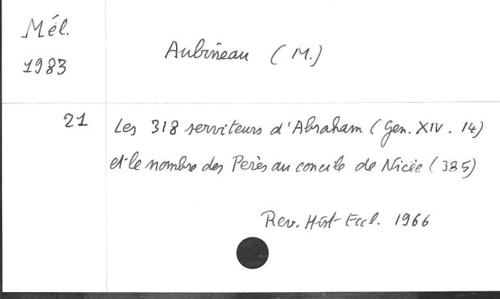 Mél.
1983
Aubineau (M.)
21
Les 318 serviteurs d'Abraham (Gen. XIV. 14)
et le nombre des Pères au concile de Nicée (325)
Rev. Hist Eccl. 1966